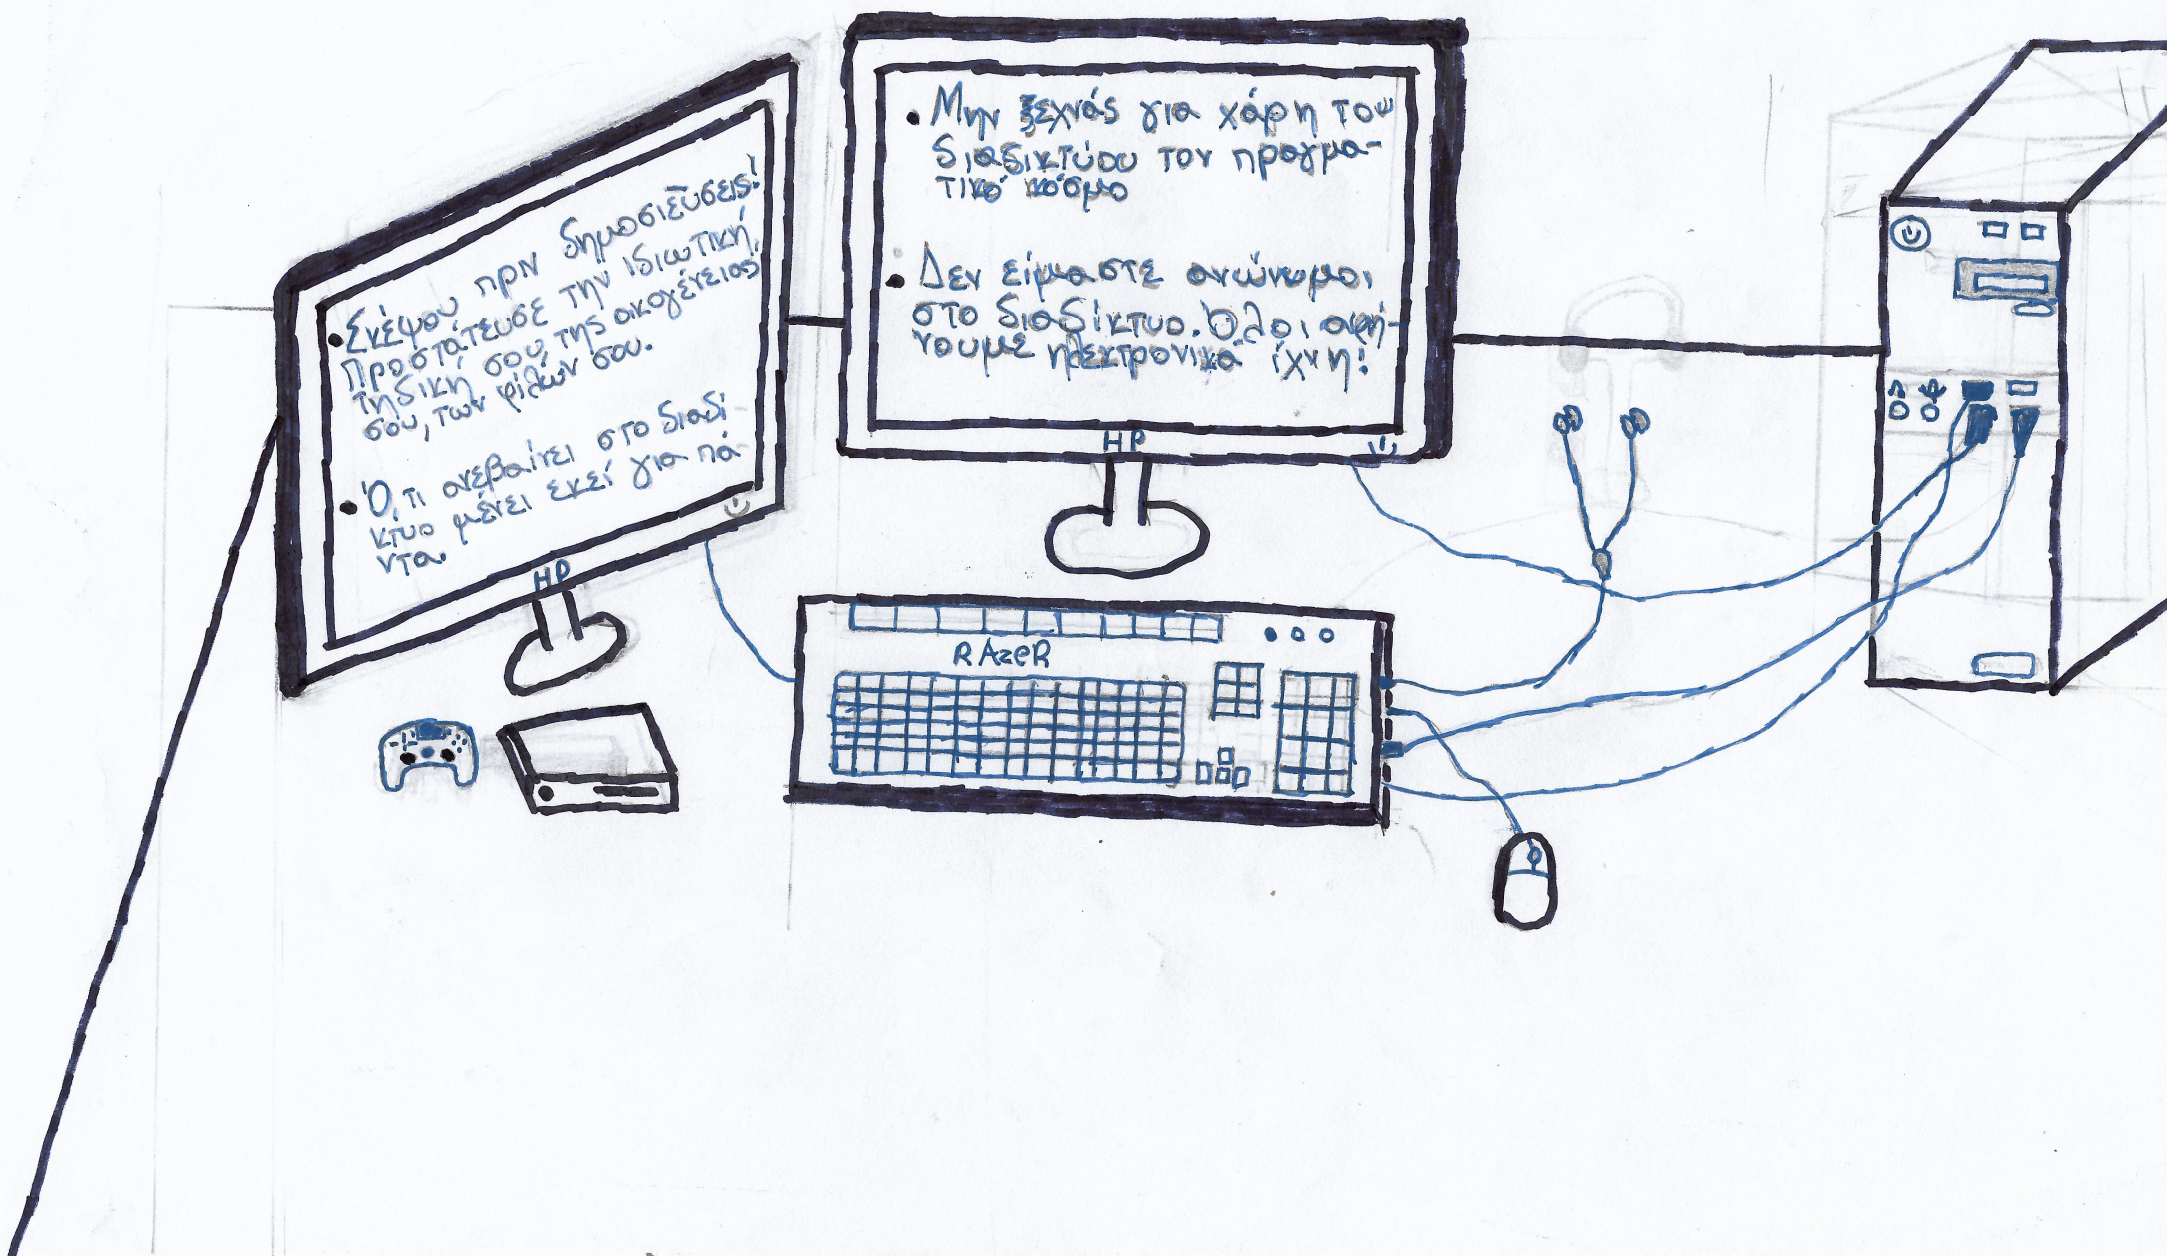 • Σκέψου πριν δημοσιεύσεις!
Προστάτευσε την ιδιωτική,
τηδική σου, της οικογένειας
σου, των φίλων σου.
• Ό,τι ανεβαίνει στο διαδί-
κτυο μένει εκεί για πά-
ντα.
HP
• Μην ξεχνάς για χάρη του
διαδικτύου τον πραγμα-
τικό κόσμο
• Δεν είμαστε ανώνυμοι
στο διαδίκτυο. Όλοι αφή-
νουμε ηλεκτρονικά ίχνη!
HP
RAzeR